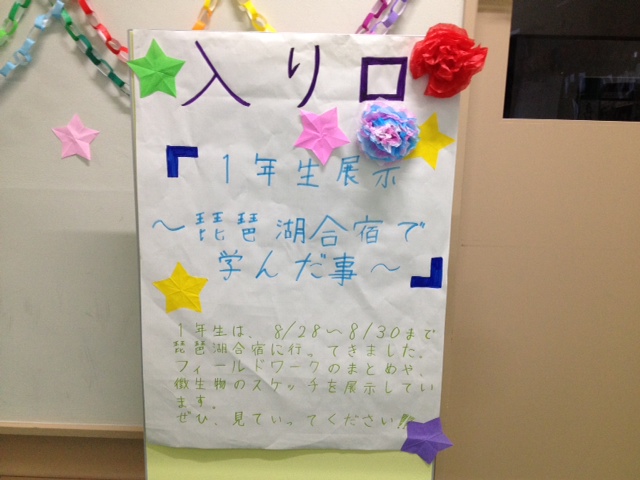 入り口
『1年生展示
〜琵琶湖合宿で
学んだ事〜』
1年生は、8/28〜8/30まで
琵琶湖合宿に行ってきました。
フィールドワークのまとめや、
微生物のスケッチを展示してい
ます。
ぜひ、見ていってください!!